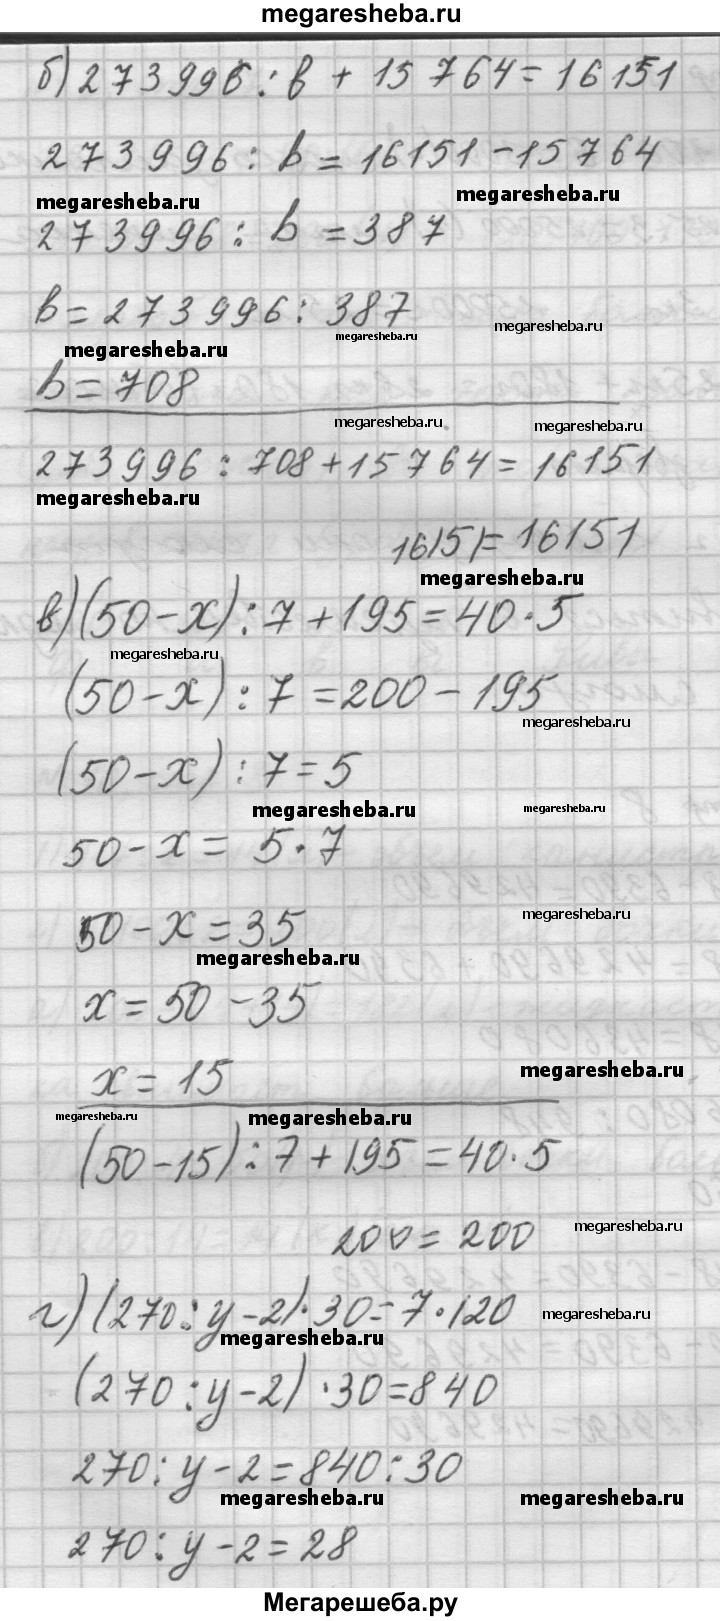 megaresheba.ru
б) 273996 : b + 15764 = 16151
273996 : b = 16151 - 15764
megaresheba.ru megaresheba.ru
273996 : b = 387
b = 273996 : 387
megaresheba.ru megaresheba.ru megaresheba.ru
b = 708
megaresheba.ru megaresheba.ru
273996 : 708 + 15764 = 16151
megaresheba.ru
16151 = 16151
megaresheba.ru
в) (50 - x) : 7 + 195 = 40 · 5
megaresheba.ru
(50 - x) : 7 = 200 - 195
megaresheba.ru
(50 - x) : 7 = 5
megaresheba.ru megaresheba.ru
50 - x = 5 · 7
50 - x = 35
megaresheba.ru
megaresheba.ru
x = 50 - 35
x = 15
megaresheba.ru
megaresheba.ru megaresheba.ru
(50 - 15) : 7 + 195 = 40 · 5
200 = 200
megaresheba.ru
г) (270 : y - 2) · 30 = 7 · 120
megaresheba.ru
megaresheba.ru
(270 : y - 2) · 30 = 840
270 : y - 2 = 840 : 30
megaresheba.ru megaresheba.ru
270 : y - 2 = 28
Мегарешеба.ру